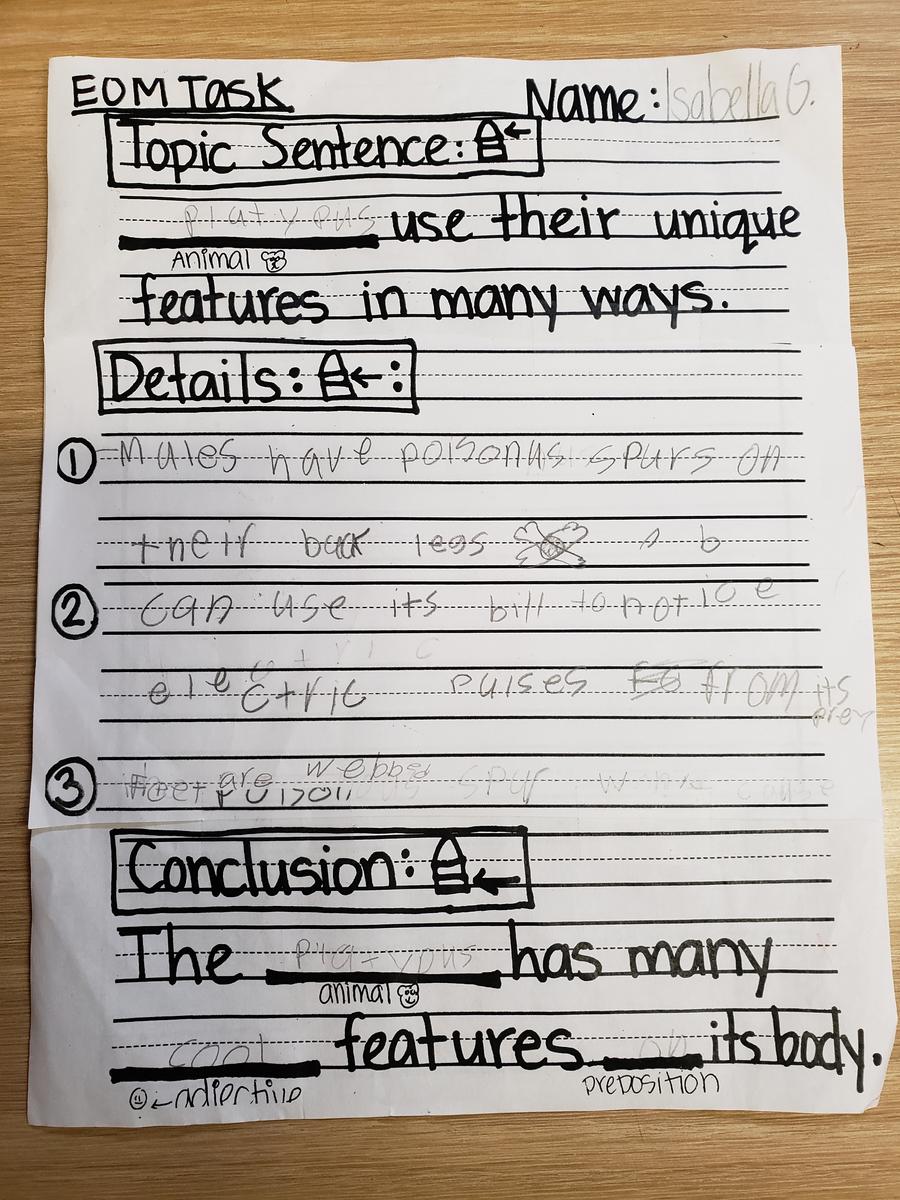 EOM Task
Name: Isabella G.
Topic Sentence:
platypus use their unique
Animal
features in many ways.
Details:
1 Males have poisonus spurs on
their back legs
2 can use its bill to notice
electric pulses from its
prey
3 Feet are webbed spur
Conclusion:
The platypus has many
animal
cool features on its body.
adjective
preposition